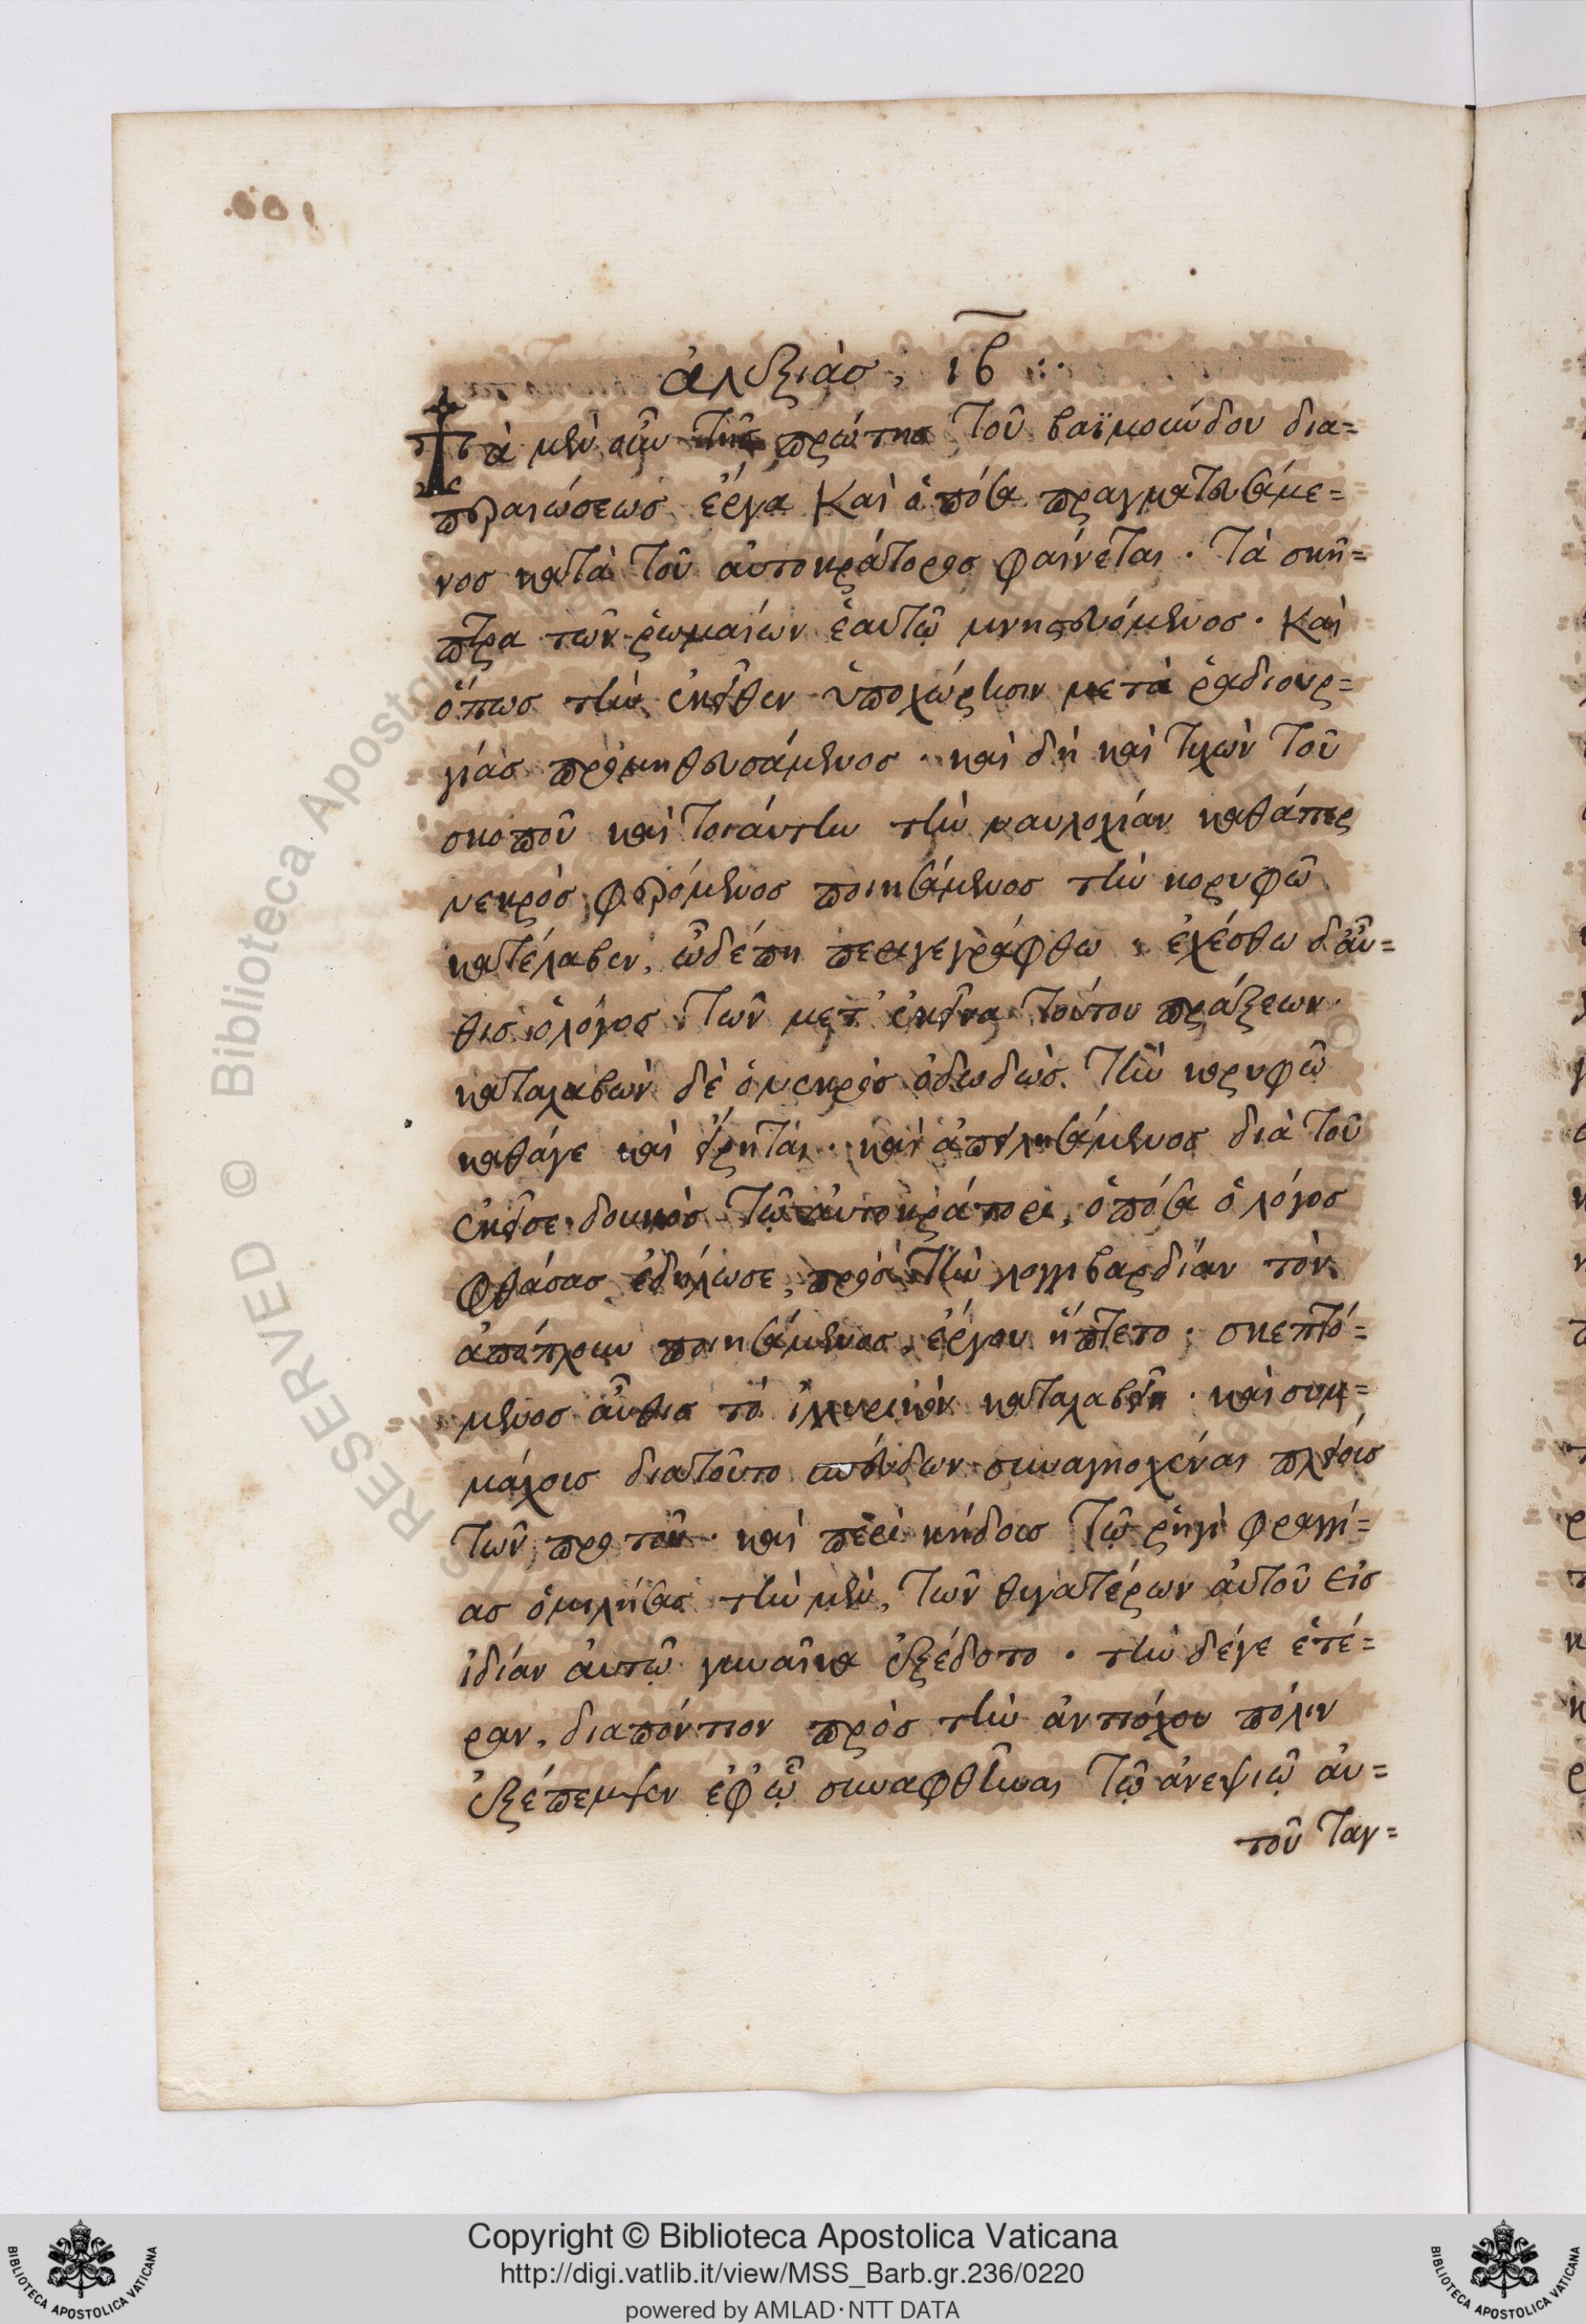 ἀλεξιὰσ, ιβ :·
Τὰ μὲν οὖν τῆς πρώτης τοῦ βαϊμούνδου δια=
περαιώσεως ἔργα καὶ ὁπόσα πραγματευσάμε=
νος κατὰ τοῦ αὐτοκράτορος φαίνεται · τὰ σκῆ=
πτρα τῶν ῥωμαίων ἑαυτῷ μνηστευόμενος · καὶ
ὅπως τὴν ἐκεῖθεν ὑποχώρησιν μετὰ ῥαδιουρ=
γίας προμηθευσάμενος · καὶ δὴ καὶ τυχὼν τοῦ
σκοποῦ καὶ τοιαύτην τὴν ναυλοχίαν καθάπερ
νεκρὸς φερόμενος ποιησάμενος τὴν κορυφῶ
κατέλαβεν, ὧδέ πη περιγεγράφθω · ἐχέσθω δ' αὖ=
θις ὁ λόγος τῶν μετ' ἐκεῖνα τούτου πράξεων·
καταλαβὼν δὲ ὁ νεκρὸς ὀδωδὼς τὴν κορυφῶ
καθάγε καὶ εἴρηται · καὶ ἀπειλησάμενος διὰ τοῦ
ἐκεῖσε δουκὸς τῷ αὐτοκράτορι, ὁπόσα ὁ λόγος
φθάσας ἐδήλωσε, πρὸς τὴν λογγιβαρδίαν τὸν
ἀπόπλουν ποιησάμενος, ἔργου ἥπτετο · σκεπτό=
μενος αὖθις τὸ ἰλλυρικὸν καταλαβεῖν · καὶ συμ=
μάχους διατοῦτο σπεύδων συναγηοχέναι πλείοις
τῶν προ τοῦ · καὶ περὶ κήδους τῷ ῥηγὶ φραγγί=
ας ὁμιλήσας τὴν μὲν, τῶν θυγατέρων αὐτοῦ εἰς
ἰδίαν αὐτῷ γυναῖκα ἐξέδοτο · τὴν δέγε ἑτέ=
ραν, διαπόντιον πρὸς τὴν ἀντιόχου πόλιν
ἐξέπεμψεν ἐφ' ᾧ συναφθῆναι τῷ ἀνεψιῷ αὐ=
τοῦ Ταγ=
Copyright © Biblioteca Apostolica Vaticana
http://digi.vatlib.it/view/MSS_Barb.gr.236/0220
powered by AMLAD·NTT DATA
BIBLIOTECA APOSTOLICA VATICANA
BIBLIOTECA APOSTOLICA VATICANA